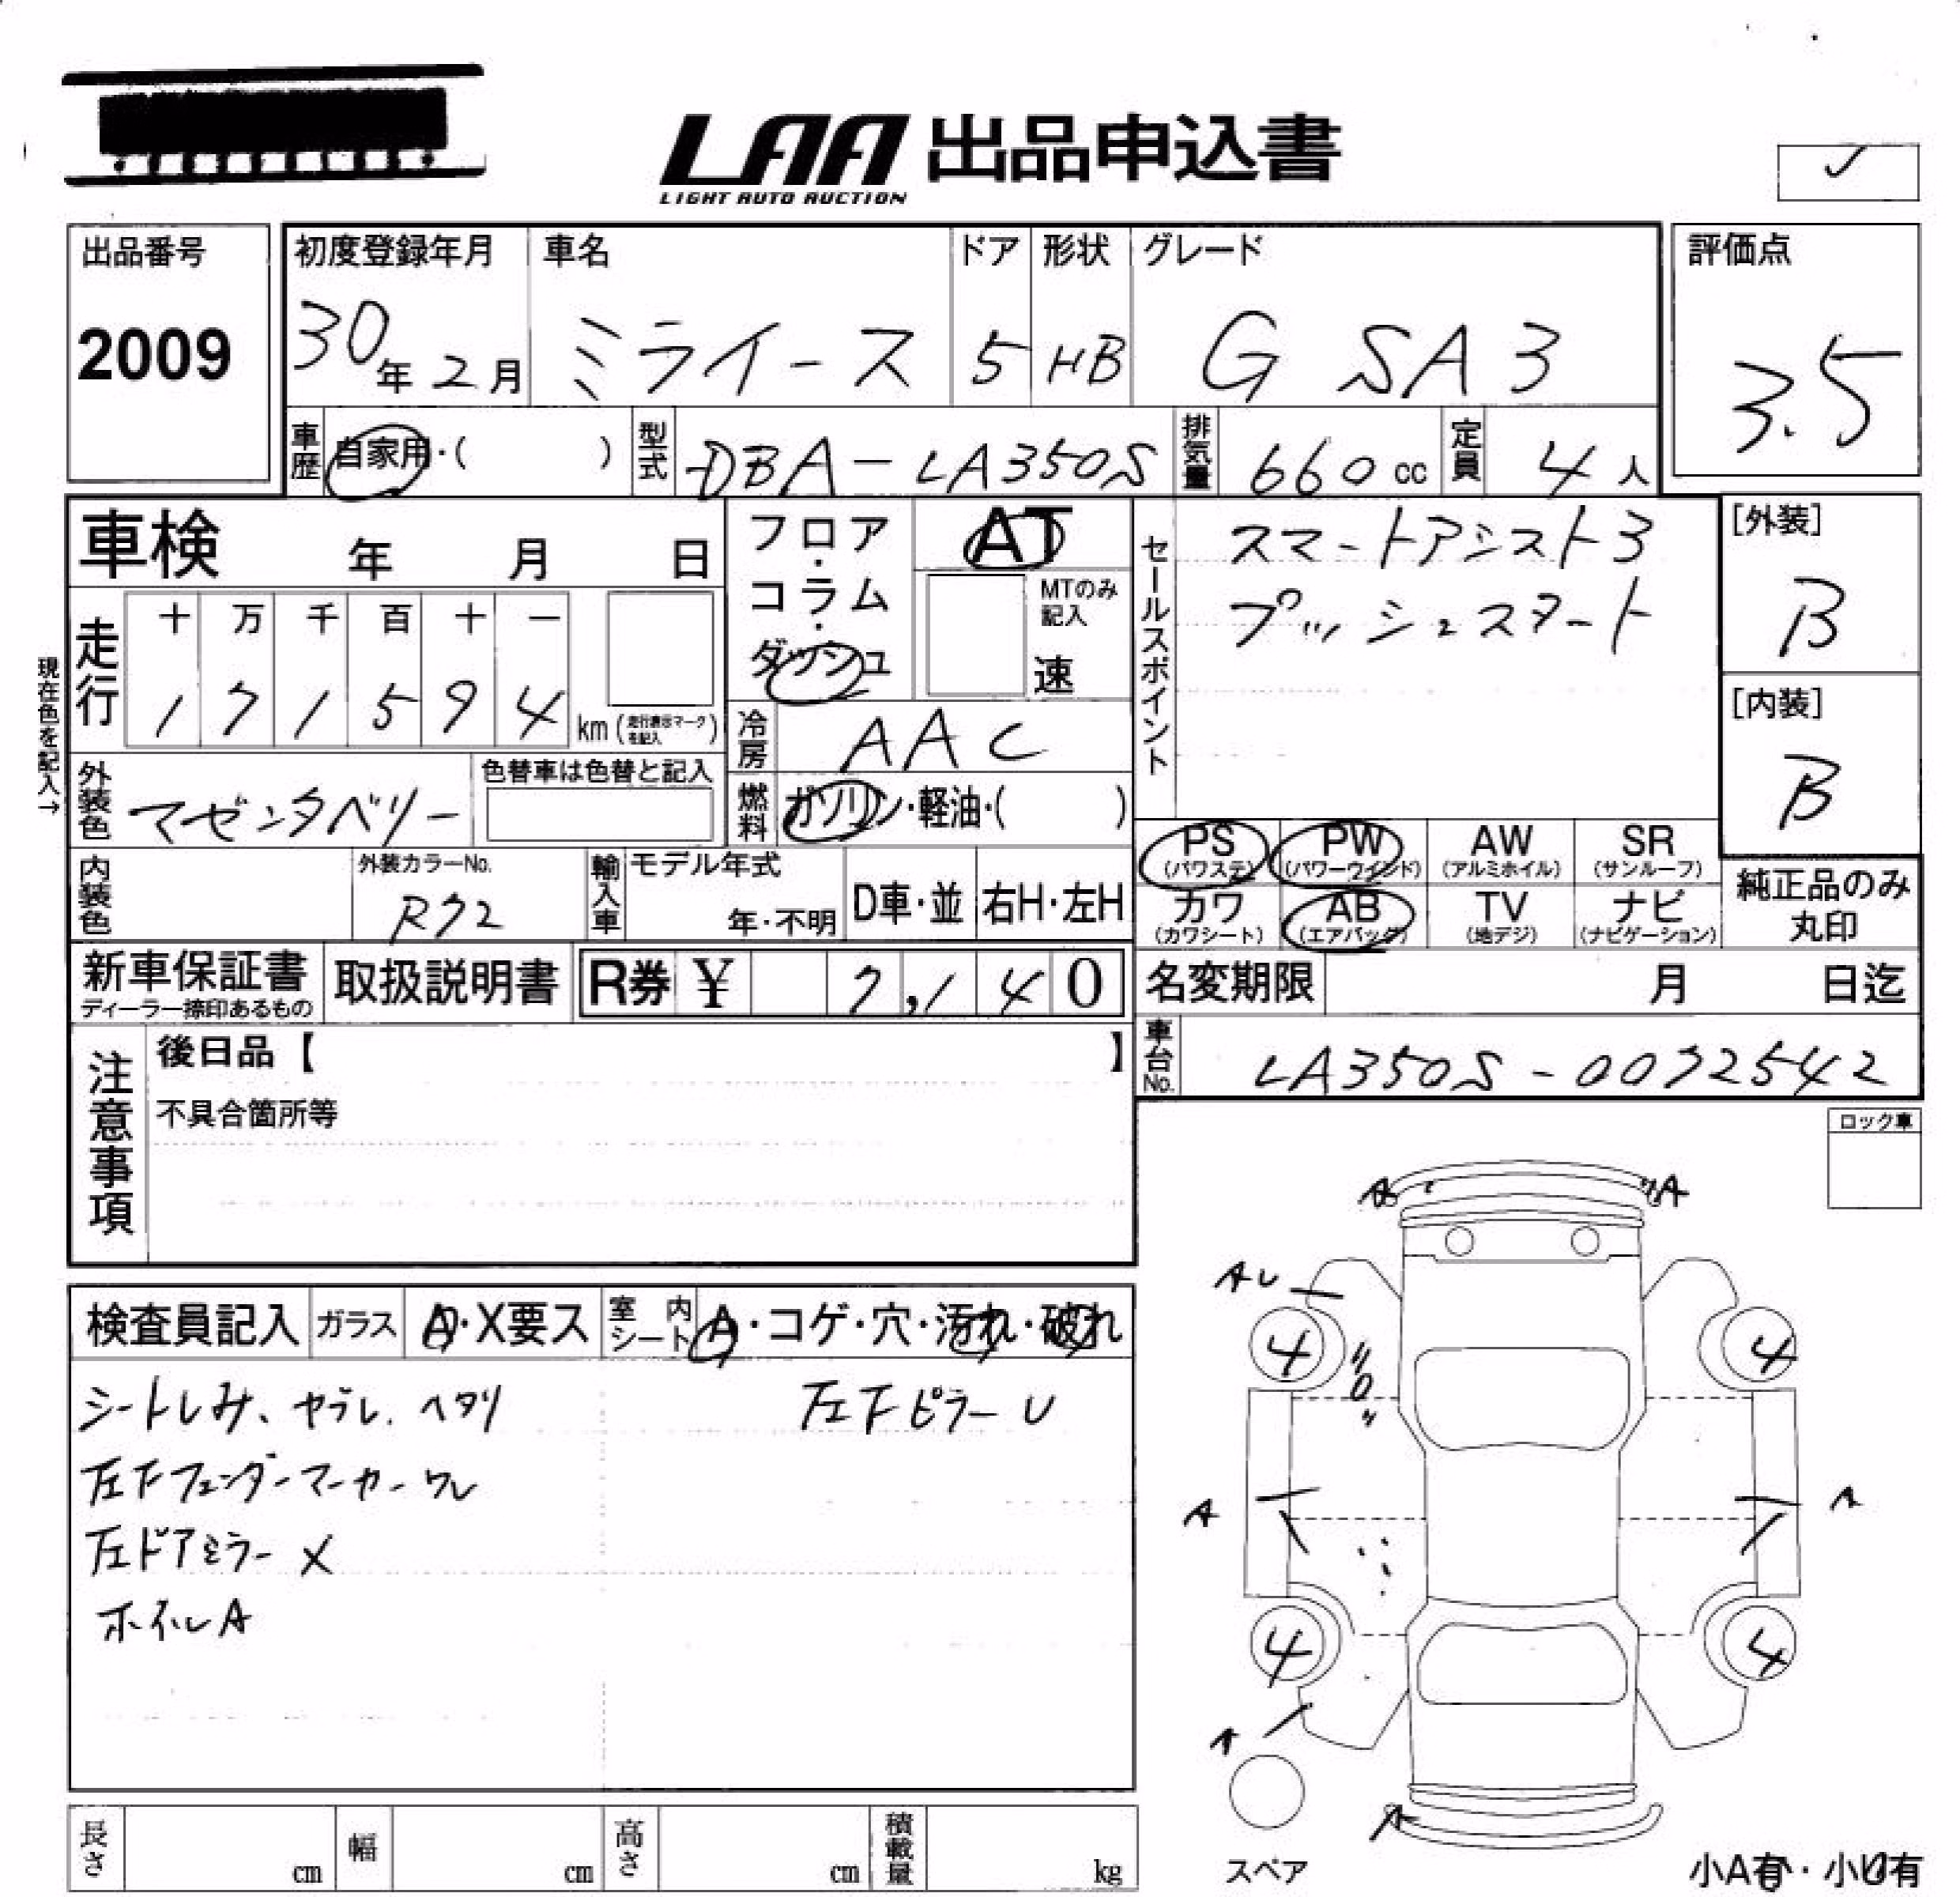 LAA 出品申込書
LIGHT AUTO AUCTION
出品番号
2009
初度登録年月
30年2月
車名
ミライース
ドア
5
形状
HB
グレード
G SA3
評価点
3.5
車歴
自家用・( )
型式
DBA-LA350S
排気量
660cc
定員
4人
車検 年 月 日
フロア・コラム・ダッシュ
AT
MTのみ記入
速
セールスポイント
スマートアシスト3
プッシュスタート
[外装]
B
[内装]
B
現在色を記入→
走行
十 万 千 百 十 一
1 7 1 5 9 4 km(走行表示マークを記入)
冷房
AAC
外装色
マゼンタベリー
色替車は色替と記入
燃料
ガソリン・軽油・( )
PS(パワステ)
PW(パワーウインド)
AW(アルミホイル)
SR(サンルーフ)
カワ(カワシート)
AB(エアバッグ)
TV(地デジ)
ナビ(ナビゲーション)
純正品のみ丸印
内装色
外装カラーNo.
R72
輸入車
モデル年式
年・不明
D車・並
右H・左H
新車保証書
ディーラー捺印あるもの
取扱説明書
R券 ¥ 7,140
名変期限 月 日迄
車台No.
LA350S-0072542
注意事項
後日品【 】
不具合箇所等
ロック車
検査員記入
ガラス
A・X要ス
室内シート
A・コゲ・穴・汚れ・破れ
シートしみ、ヤブレ、ヘタリ
左Fフェンダーマーカーワレ
左ドアミラーX
ホイルA
左FピラーU
A
A
AU
4
4
A
A
4
4
A
A
スペア
長さ cm
幅 cm
高さ cm
積載量 kg
小A有・小U有